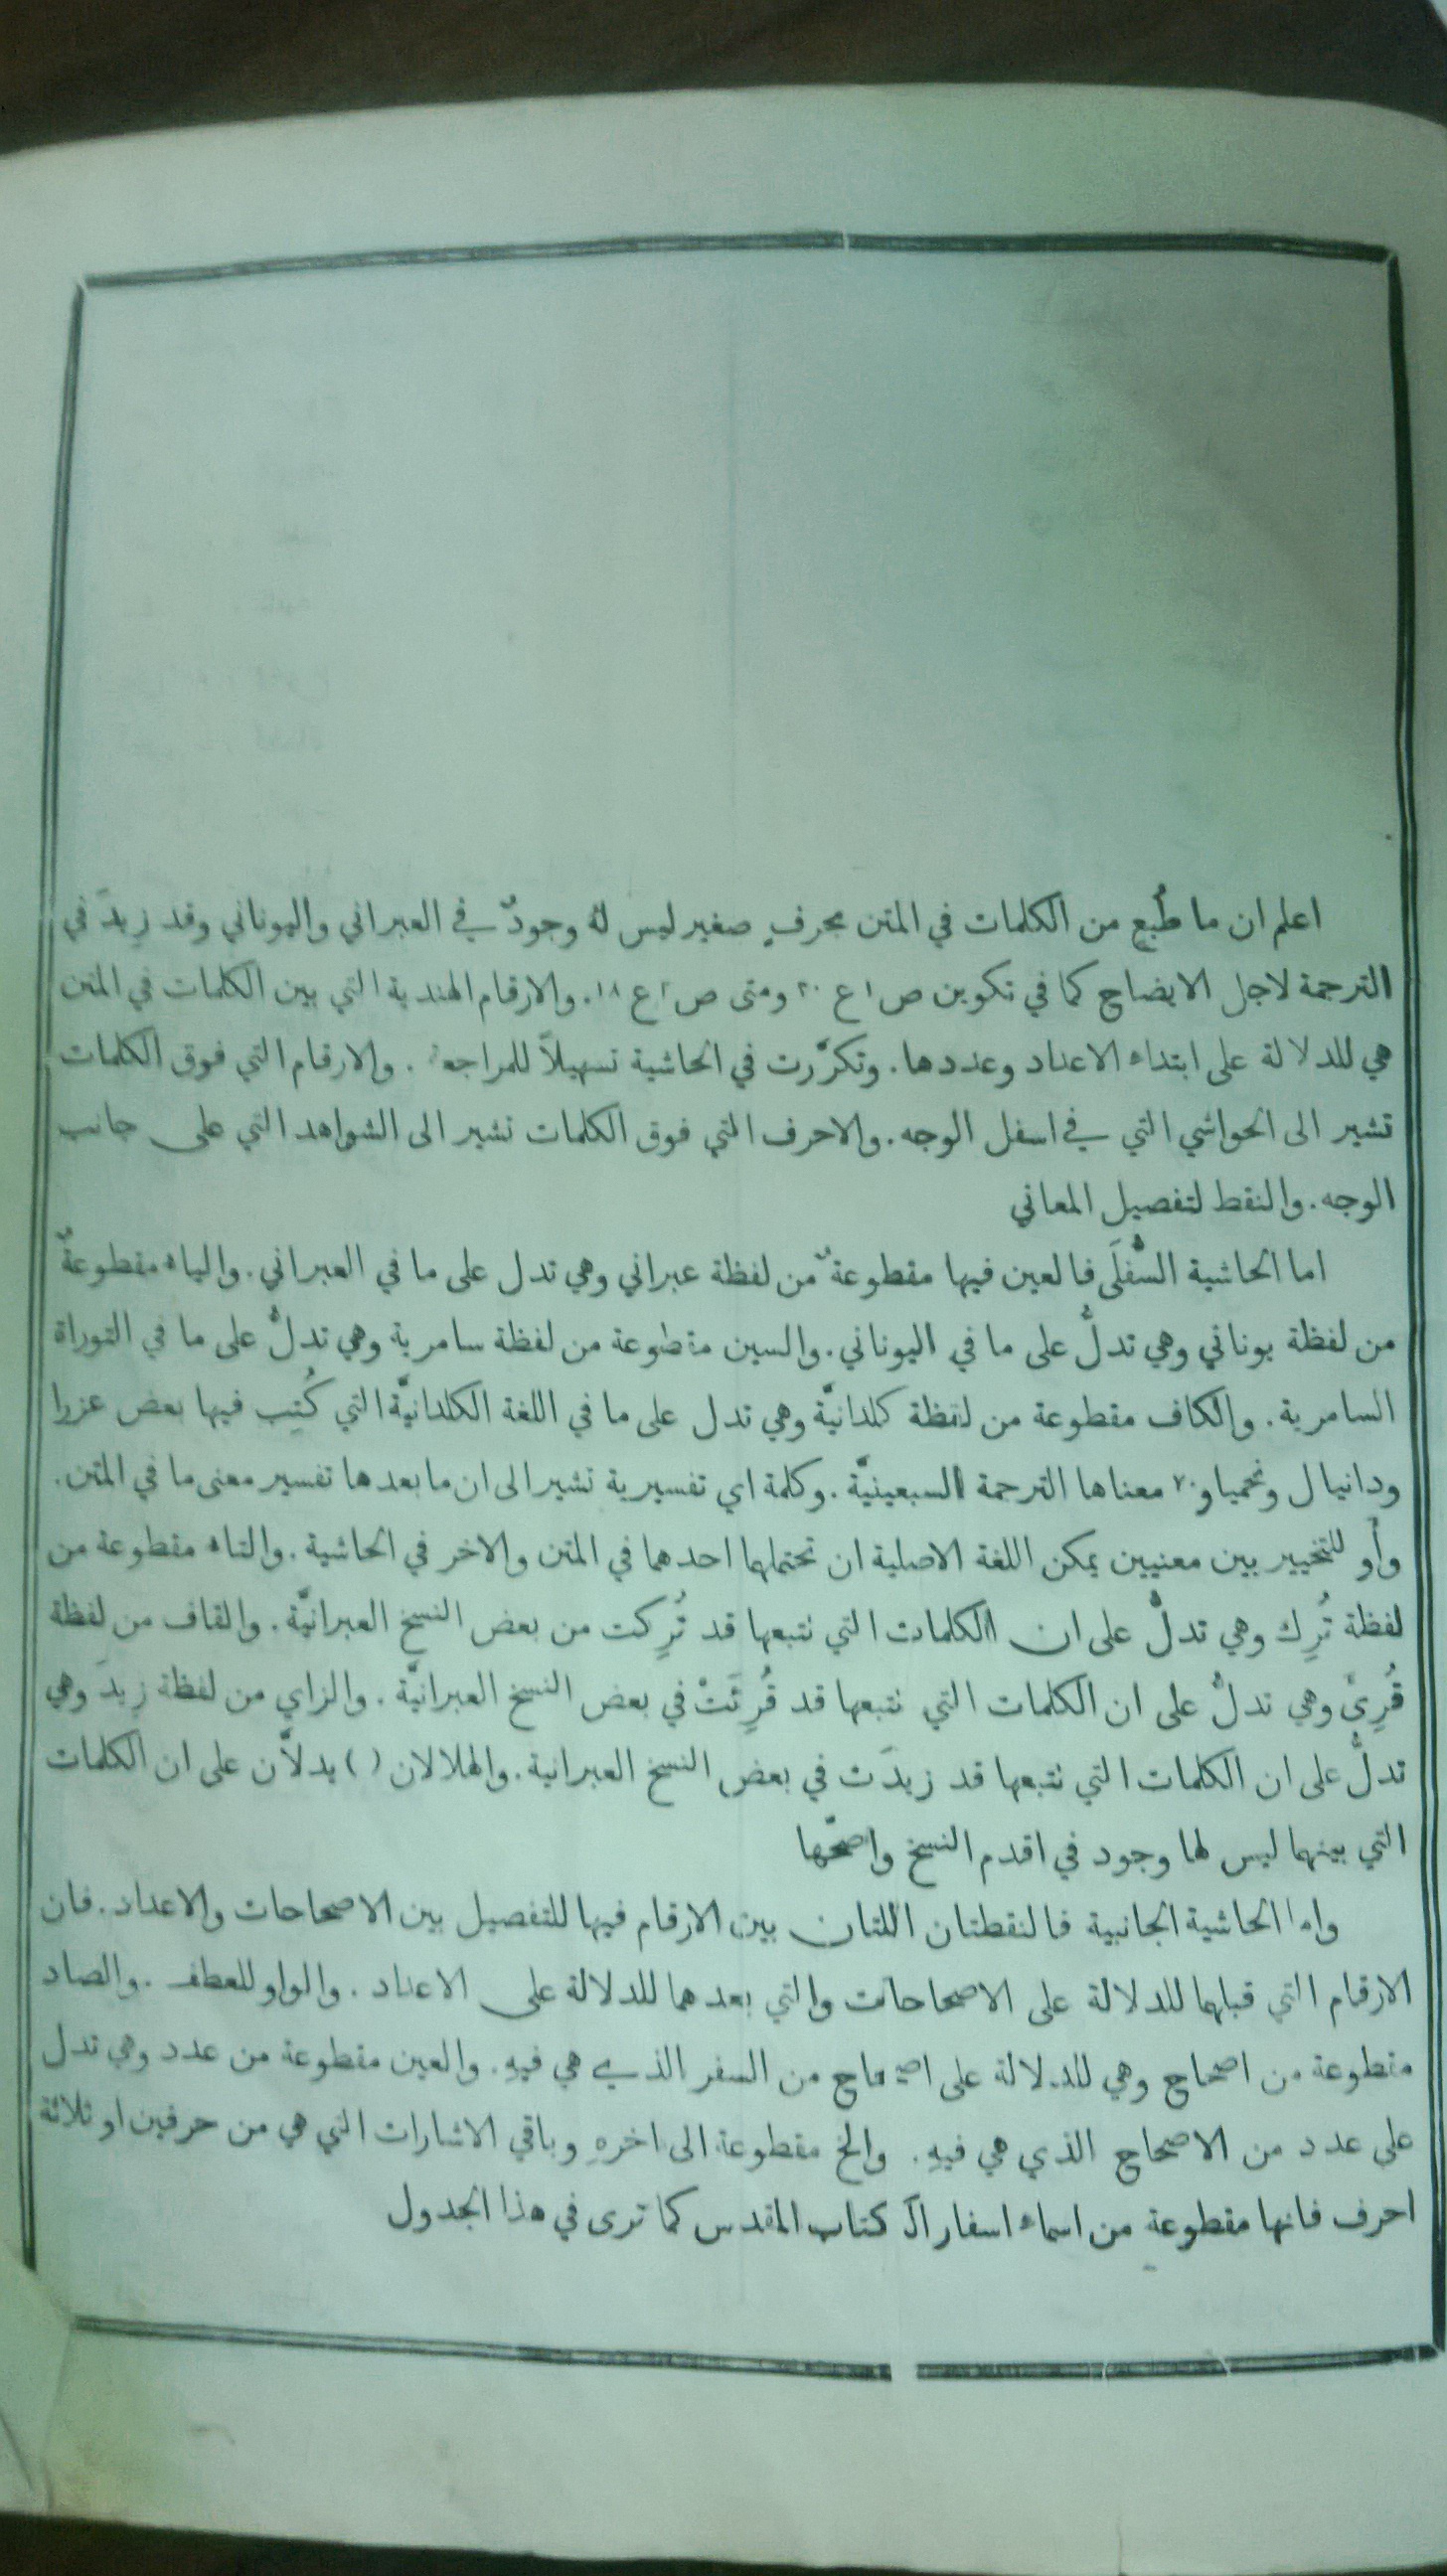 اعلم ان ما طُبع من الكلمات في المتن بحرفٍ صغير ليس لهُ وجودٌ في العبراني واليوناني وقد زِيدَ في
الترجمة لاجل الايضاح كما في تكوين ص ١ ع ٢٠ ومتى ص ٢ ع ١٨. والارقام الهندية التي بين الكلمات في المتن
هي للدلالة على ابتداء الاعداد وعددها. وتكرَّرت في الحاشية تسهيلاً للمراجعة. والارقام التي فوق الكلمات
تشير الى الحواشي التي في اسفل الوجه. والاحرف التي فوق الكلمات تشير الى الشواهد التي على جانب
الوجه. والنقط لتفصيل المعاني
اما الحاشية السُّفلَى فالعين فيها مقطوعةٌ من لفظة عبراني وهي تدل على ما في العبراني. والياء مقطوعةٌ
من لفظة يوناني وهي تدلُّ على ما في اليوناني. والسين مقطوعة من لفظة سامرية وهي تدلُّ على ما في التوراة
السامرية. والكاف مقطوعة من لفظة كلدانيَّة وهي تدل على ما في اللغة الكلدانيَّة التي كُتِب فيها بعض عزرا
ودانيال ونحميا و٧٠ معناها الترجمة السبعينيَّة. وكلمة اي تفسيرية تشير الى ان ما بعدها تفسير معنى ما في المتن.
وأو للتخيير بين معنيين يمكن اللغة الاصلية ان تحتملهما احدهما في المتن والاخر في الحاشية. والتاء مقطوعة من
لفظة تُرِك وهي تدلُّ على ان الكلمات التي نتبعها قد تُرِكت من بعض النسخ العبرانيَّة. والقاف من لفظة
قُرِئَ وهي تدلُّ على ان الكلمات التي نتبعها قد قُرِئَتْ في بعض النسخ العبرانيَّة. والزاي من لفظة زِيدَ وهي
تدلُّ على ان الكلمات التي نتبعها قد زيدَت في بعض النسخ العبرانية. والهلالان ( ) يدلاَّن على ان الكلمات
التي بينهما ليس لها وجود في اقدم النسخ واصحّها
واما الحاشية الجانبية فالنقطتان اللتان بين الارقام فيها للتفصيل بين الاصحاحات والاعداد. فان
الارقام التي قبلهما للدلالة على الاصحاحات والتي بعدهما للدلالة على الاعداد. والواو للعطف. والصاد
مقطوعة من اصحاح وهي للدلالة على اصحاح من السفر الذي هي فيهِ. والعين مقطوعة من عدد وهي تدل
على عدد من الاصحاح الذي هي فيهِ. والخ مقطوعة الى اخرهِ وباقي الاشارات التي هي من حرفين او ثلاثة
احرف فانها مقطوعة من اسماء اسفار الكتاب المقدس كما ترى في هذا الجدول